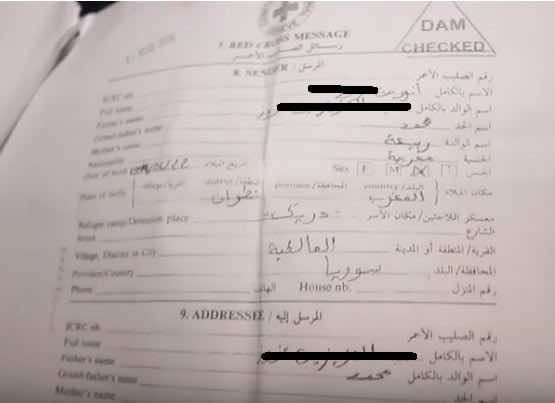 DAM
CHECKED
7. RED CROSS MESSAGE
رسائل الصليب الأحمر
8. SENDER / المرسل
ICRC nb رقم الصليب الأحمر
Full name الاسم بالكامل
Father's name اسم الوالد بالكامل
Grand-father's name محمد اسم الجد
Mother's name ربيعة اسم الوالدة
Nationality مغربية الجنسية
Date of birth تاريخ الميلاد Sex F M الجنس
Place of birth القرية district المنطقة province المحافظة country البلد مكان الميلاد
تطوان المغرب
Refugee camp/Detention place ديريك معسكر اللاجئين/مكان الأسر
Street الشارع
Village, District or City المالكية القرية/المنطقة أو المدينة
Province/Country سوريا المحافظة/البلد
Phone الهاتف House nb. رقم المنزل
9. ADDRESSEE / المرسل إليه
ICRC nb رقم الصليب الأحمر
Full name الاسم بالكامل
Father's name محمد اسم الوالد بالكامل
Grand-father's name اسم الجد
Mother's name